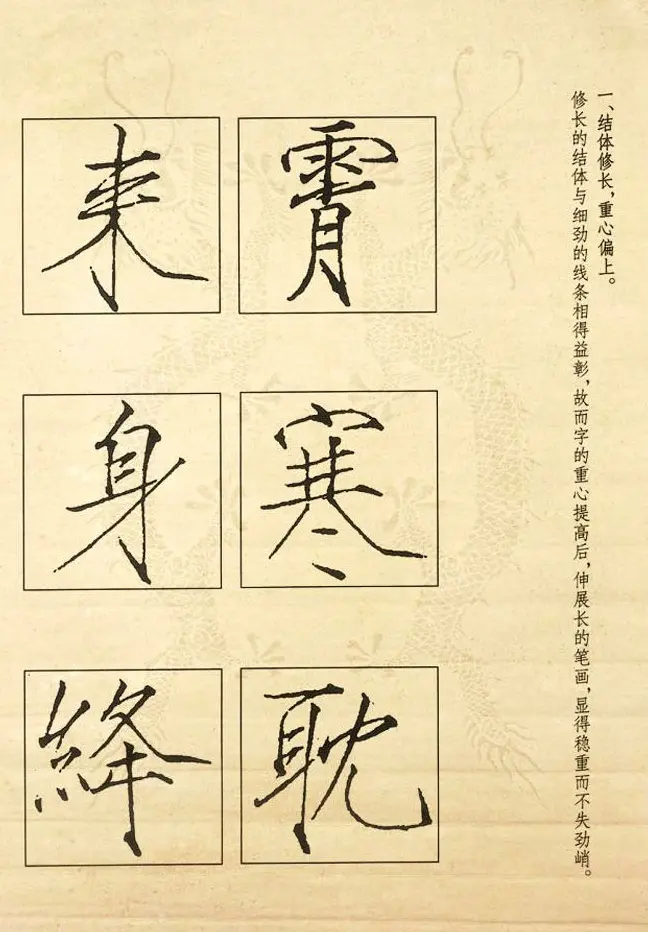 一、结体修长，重心偏上。
修长的结体与细劲的线条相得益彰，故而字的重心提高后，伸展长的笔画，显得稳重而不失劲峭。
霄
来
寒
身
耽
绛